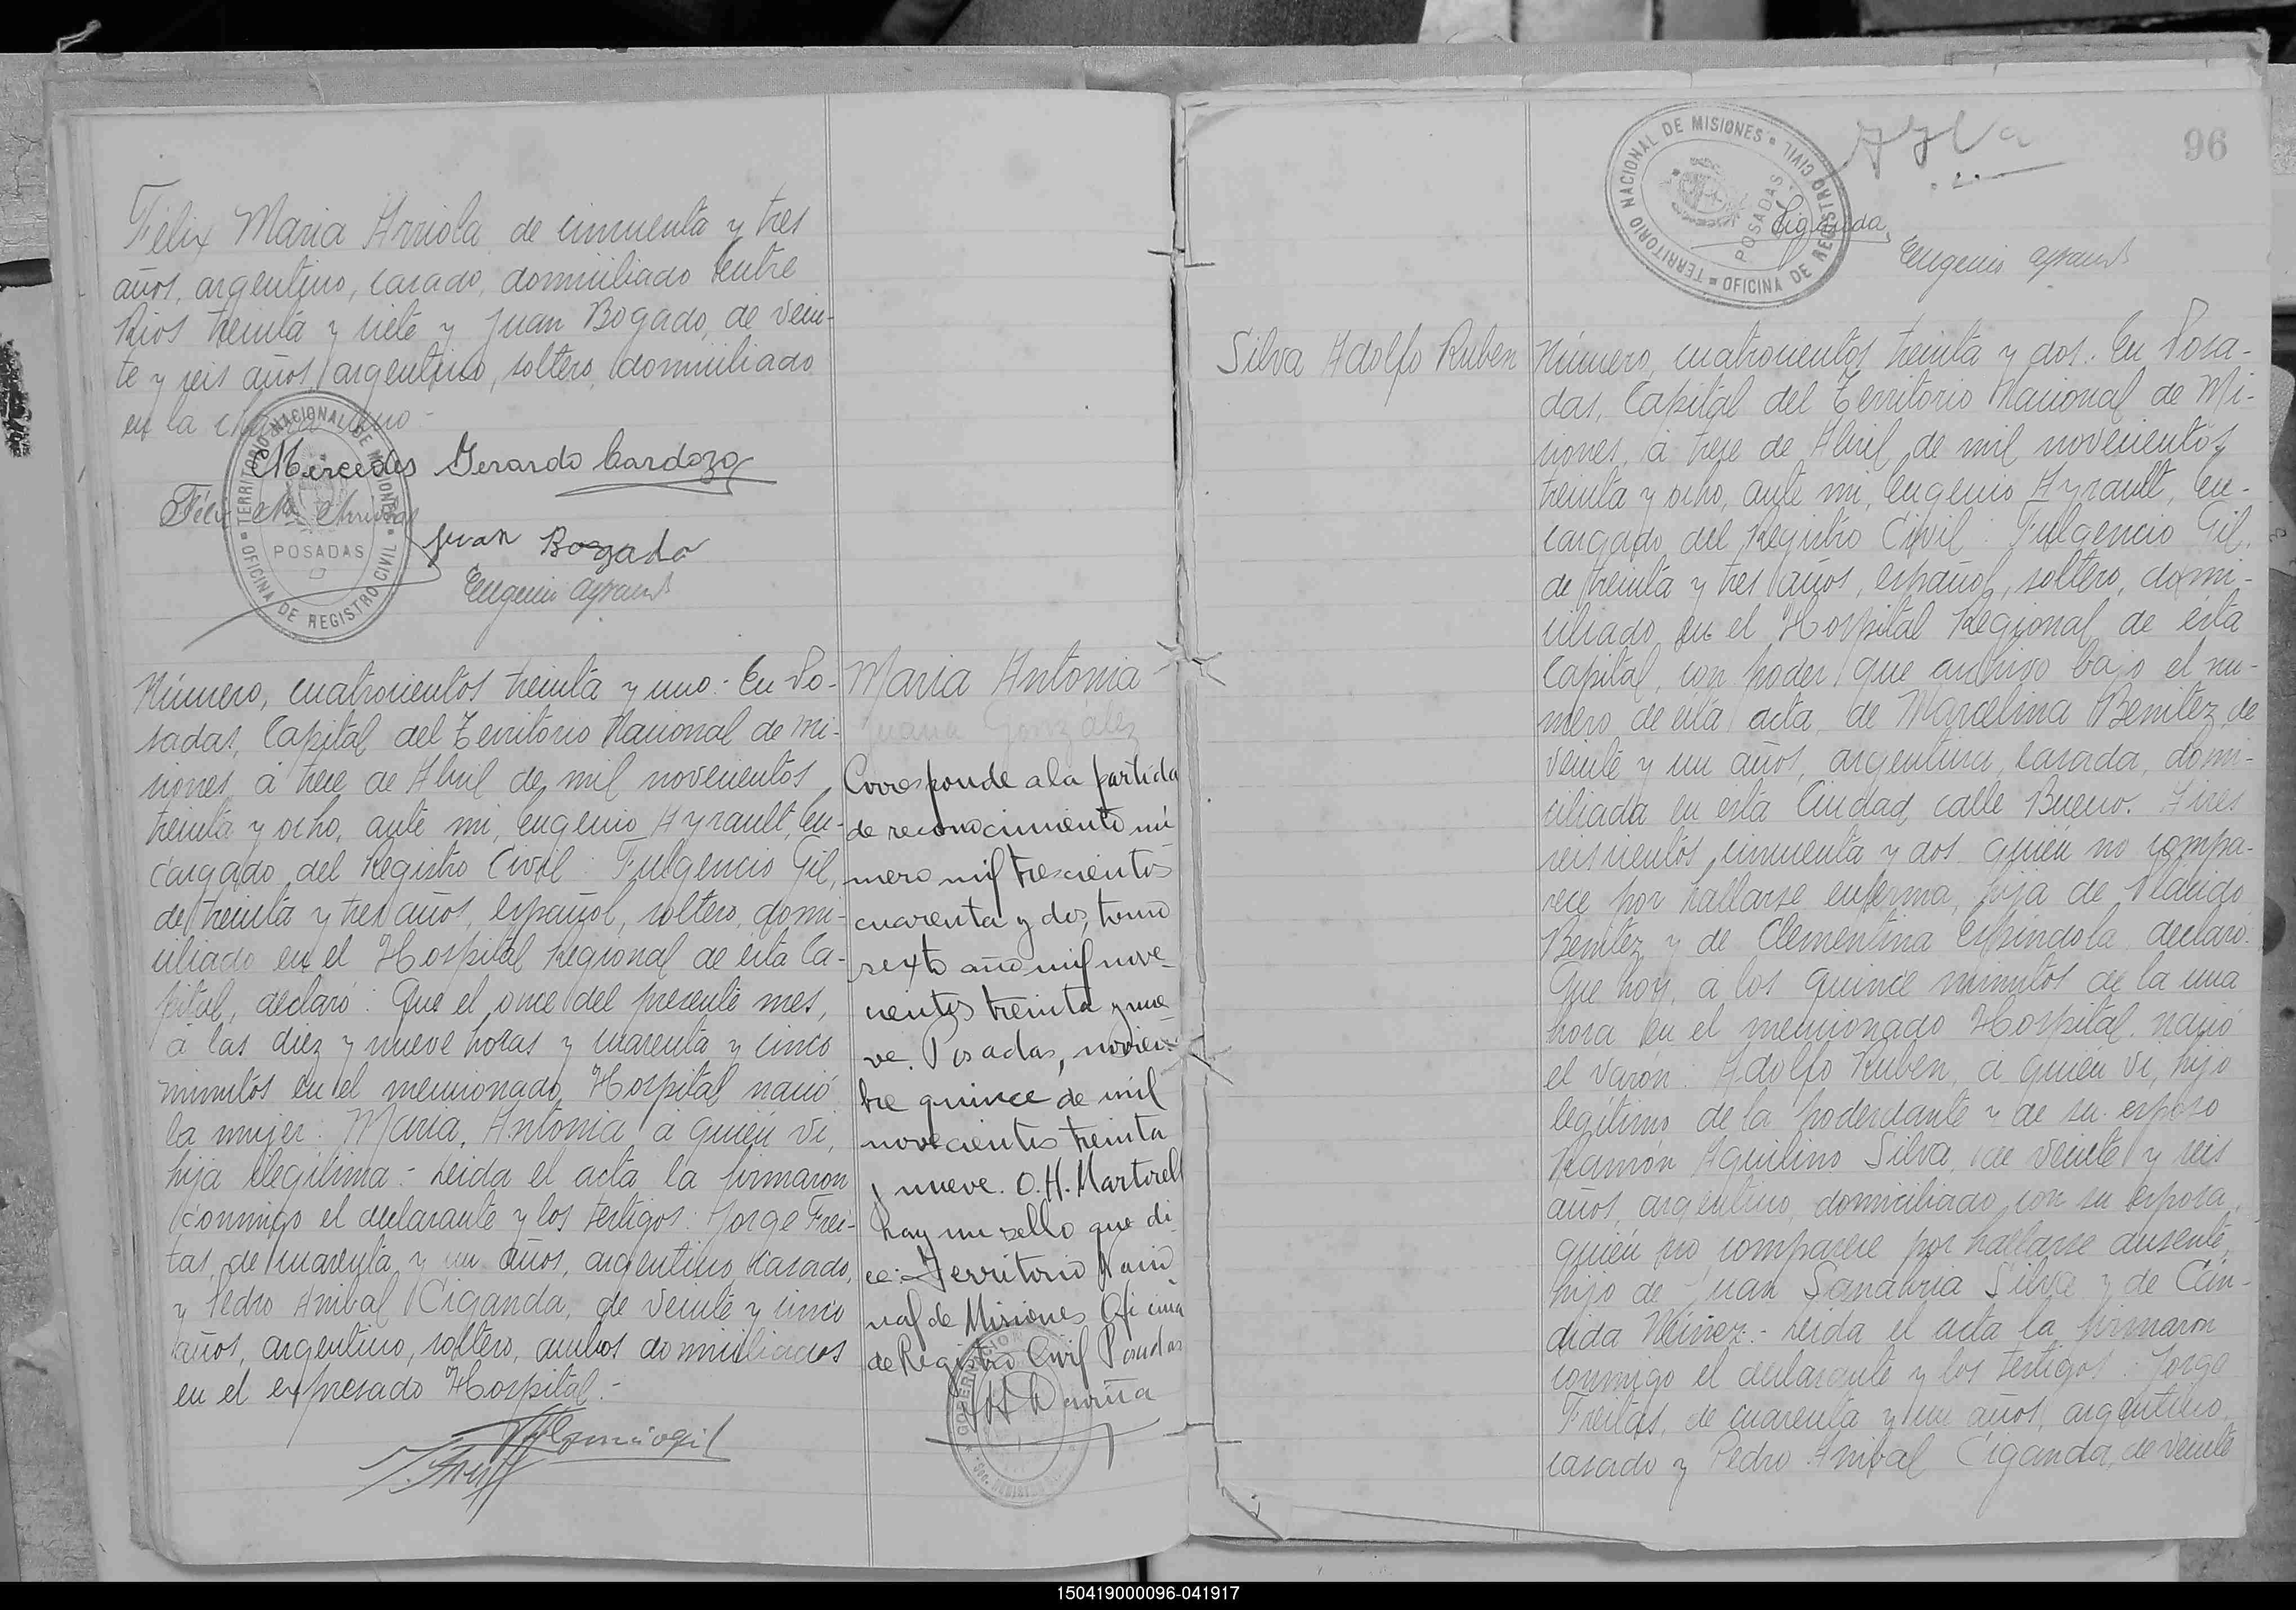 Félix Maria Arriola, de cincuenta y tres
años, argentino, casado, domiciliado Entre
Rios treinta y siete y Juan Bogado, de vein-
te y seis años, argentino, soltero, domiciliado
en la chacra uno-
Mercedes Gerardo Cardozo
Félix M. Arriola
Juan Bogado
Eugenio Ayrault
TERRITORIO NACIONAL DE MISIONES
POSADAS
OFICINA DE REGISTRO CIVIL
Número, cuatrocientos treinta y uno.- En Po-
sadas, Capital del Territorio Nacional de Mi-
siones, á trece de Abril de mil novecientos
treinta y ocho, ante mi, Eugenio Ayrault, En-
cargado del Registro Civil: Fulgencio Gil,
de treinta y tres años, español, soltero, domi-
ciliado en el Hospital Regional de ésta Ca-
pital, declaró: Que el once del presente mes,
á las diez y nueve horas y cuarenta y cinco
minutos en el mencionado Hospital nació
la mujer: Maria, Antonia á quién ví,
hija ilegítima.- Leida el acta la firmaron
conmigo el declarante y los testigos: Jorge Frei-
tas, de cuarenta y un años, argentino, casado,
y Pedro Anibal Ciganda, de veinte y cinco
años, argentino, soltero, ambos domiciliados
en el expresado Hospital.-
Maria Antonia
Juana González
Corresponde a la partida
de reconocimiento nú
mero mil trescientos
cuarenta y dos, tomo
sexto año mil nove-
cientos treinta y nue
ve. Posadas, noviem-
bre quince de mil
novecientos treinta
y nueve. O. H. Martorell
hay un sello que di
ce: Territorio Nacio
nal de Misiones Oficina
de Registro Civil Posadas
96
TERRITORIO NACIONAL DE MISIONES
POSADAS
OFICINA DE REGISTRO CIVIL
Ciganda
Eugenio Ayrault
Silva Adolfo Ruben
Número, cuatrocientos treinta y dos. En Posa-
das, Capital del Territorio Nacional de Mi-
siones, á trece de Abril de mil novecientos
treinta y ocho, ante mi, Eugenio Ayrault, En-
cargado del Registro Civil: Fulgencio Gil,
de treinta y tres años, español, soltero, domi-
ciliado en el Hospital Regional de ésta
Capital, con poder que archivo bajo el nú-
mero de esta acta de Marcelina Benitez, de
veinte y un años, argentina, casada, domi-
ciliada en esta Ciudad calle Bueno. Aires
seiscientos cincuenta y dos quién no compa-
rece por hallarse enferma, hija de Plácido
Benitez y de Clementina Espindola declaró:
Que hoy, á los quince minutos de la una
hora en el mencionado Hospital nació
el varón: Adolfo Ruben, á quién ví, hijo
legítimo de la poderdante y de su esposo
Ramón Aquilino Silva, de veinte y seis
años, argentino, domiciliado con su esposa,
quién no comparece por hallarse ausente,
hijo de Juan Sanabria Silva y de Cán-
dida Núñez.- Leida el acta la firmaron
conmigo el declarante y los testigos: Jorge
Freitas, de cuarenta y un años, argentino,
casado y Pedro Anibal Ciganda, de veinte
150419000096-041917